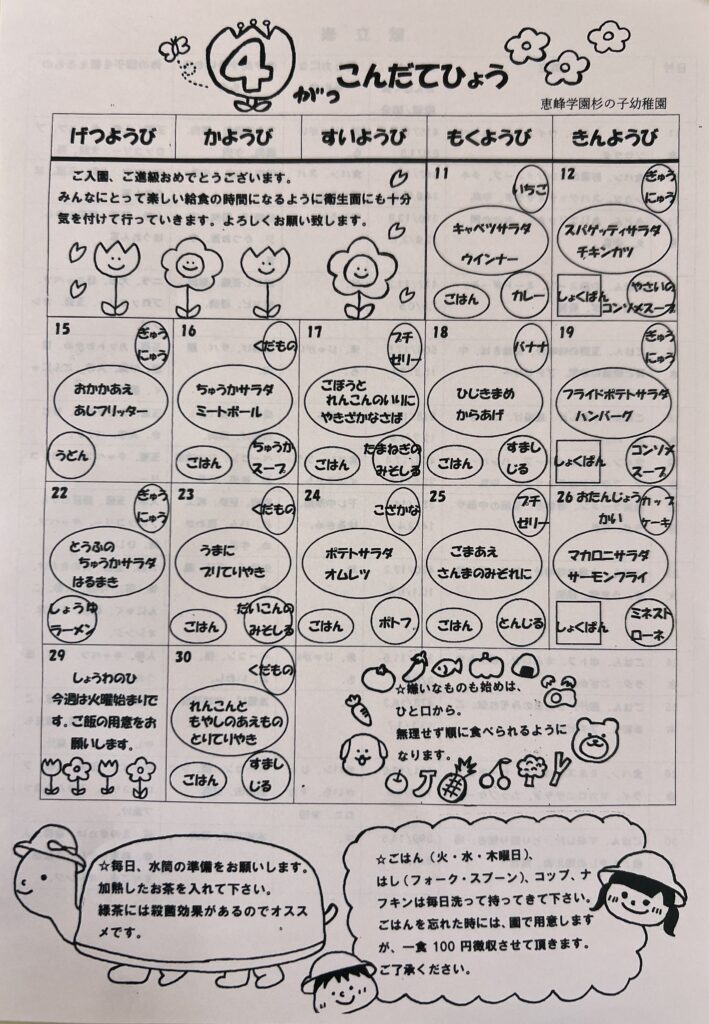 4がつ こんだてひょう
恵峰学園杉の子幼稚園
げつようび かようび すいようび もくようび きんようび
ご入園、ご進級おめでとうございます。
みんなにとって楽しい給食の時間になるように衛生面にも十分
気を付けて行っていきます。よろしくお願い致します。
11
いちご
キャベツサラダ
ウインナー
ごはん
カレー
12
ぎゅう
にゅう
スパゲッティサラダ
チキンカツ
しょくぱん
やさいの
コンソメスープ
15
ぎゅう
にゅう
おかかあえ
あじフリッター
うどん
16
くだもの
ちゅうかサラダ
ミートボール
ごはん
ちゅうか
スープ
17
プチ
ゼリー
ごぼうと
れんこんのいりに
やきざかなさば
ごはん
たまねぎの
みそしる
18
バナナ
ひじきまめ
からあげ
ごはん
すまし
じる
19
ぎゅう
にゅう
フライドポテトサラダ
ハンバーグ
しょくぱん
コンソメ
スープ
22
ぎゅう
にゅう
とうふの
ちゅうかサラダ
はるまき
しょうゆ
ラーメン
23
くだもの
うまに
ブリてりやき
ごはん
だいこんの
みそしる
24
こざかな
ポテトサラダ
オムレツ
ごはん
ポトフ
25
プチ
ゼリー
ごまあえ
さんまのみぞれに
ごはん
とんじる
26 おたんじょう
かい
カップ
ケーキ
マカロニサラダ
サーモンフライ
しょくぱん
ミネスト
ローネ
29
しょうわのひ
今週は火曜始まりで
す。ご飯の用意をお
願いします。
30
くだもの
れんこんと
もやしのあえもの
とりてりやき
ごはん
すまし
じる
☆嫌いなものも始めは、
ひと口から。
無理せず順に食べられるように
なります。
☆毎日、水筒の準備をお願いします。
加熱したお茶を入れて下さい。
緑茶には殺菌効果があるのでオスス
メです。
☆ごはん(火・水・木曜日)、
はし(フォーク・スプーン)、コップ、ナ
フキンは毎日洗って持ってきて下さい。
ごはんを忘れた時には、園で用意します
が、一食100円徴収させて頂きます。
ご了承ください。